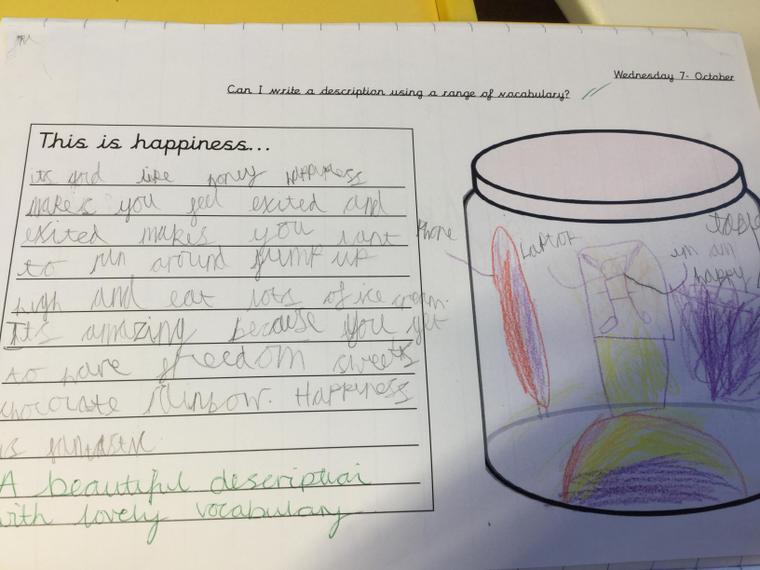 Wednesday 7- October
Can I write a description using a range of vocabulary?
This is happiness...
its and like honey happiness
makes you feel exited and
exited makes you want
to run around jump up
high and eat lots of ice cream.
Its amazing because you get
to have freedom sweets
chocolate Rainbow. Happiness
is funtastic
A beautiful description
with lovely vocabulary
Phone
Laptop
im am
happy